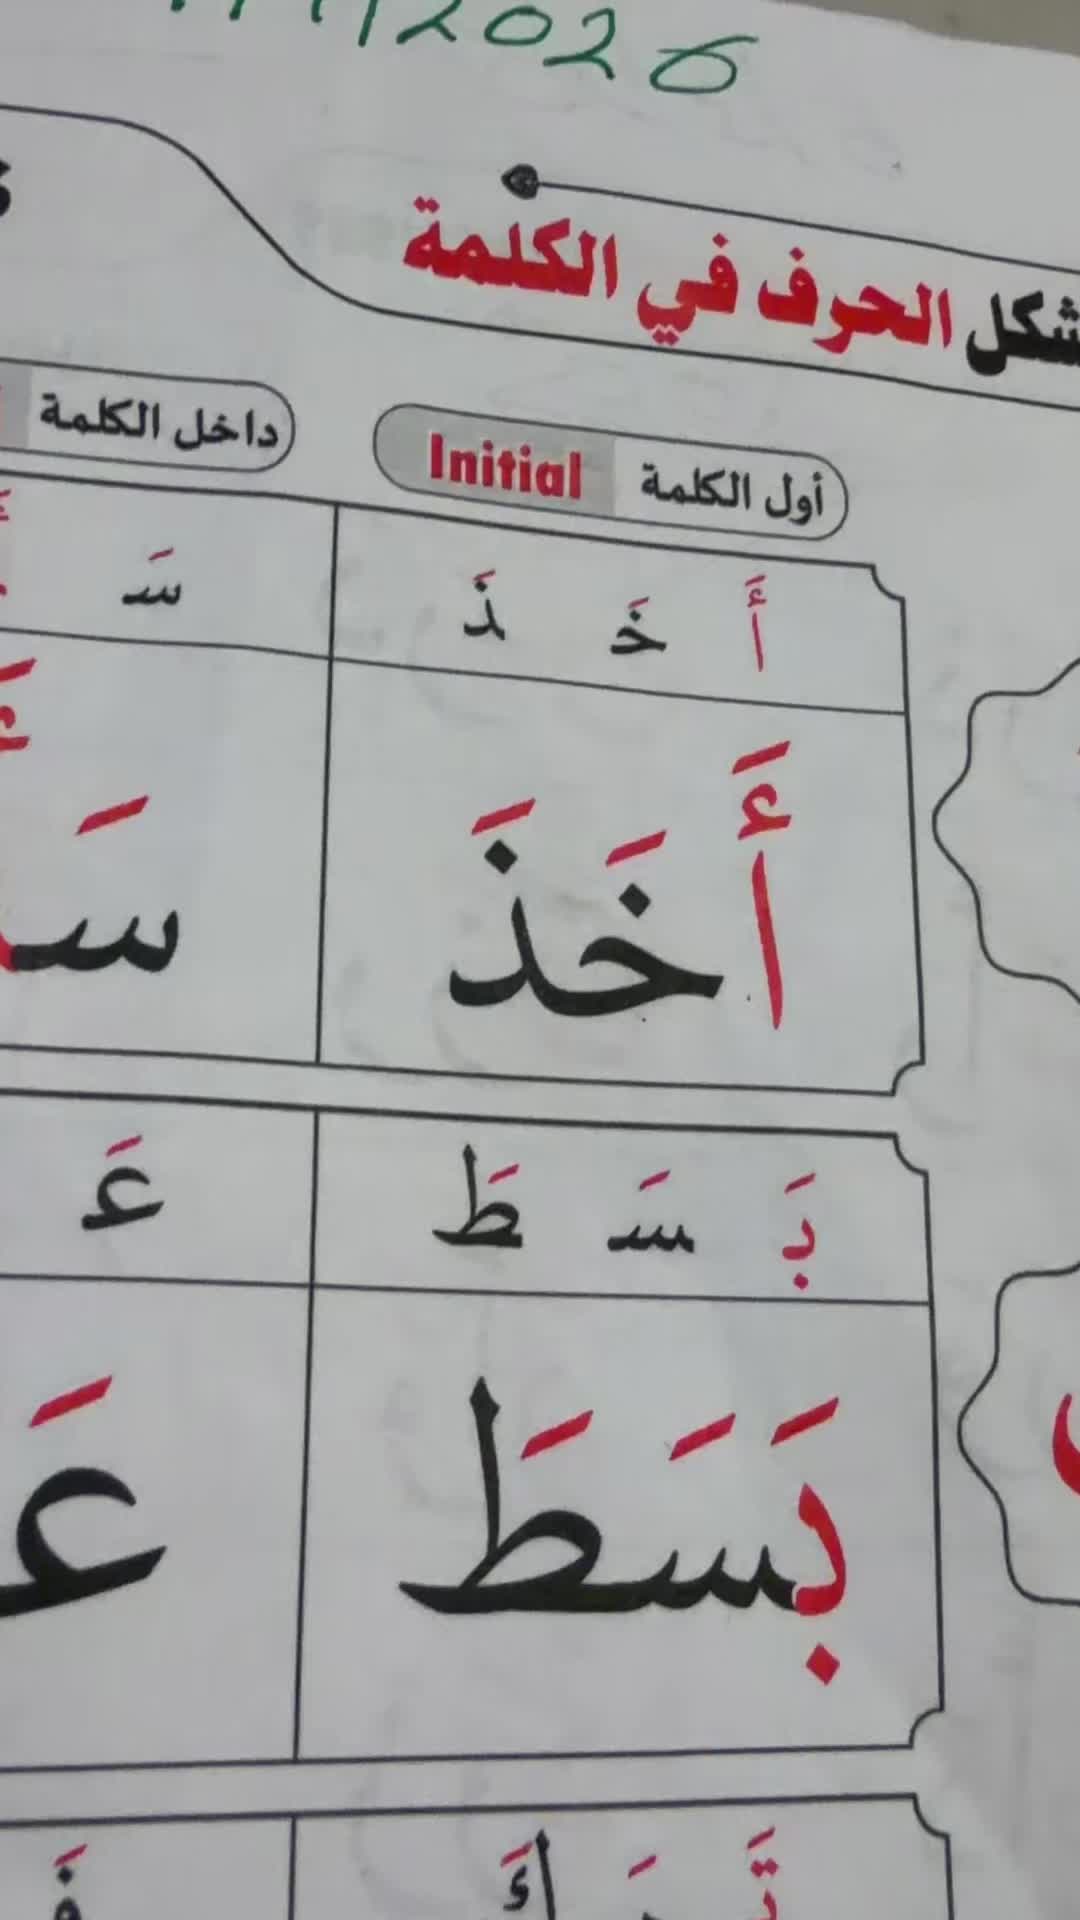 2026
شكل الحرف في الكلمة
أول الكلمة Initial
داخل الكلمة
أَ خَ ذَ
سَ
أَخَذَ
سَ
بَ سَ طَ
عَ
بَسَطَ
عَ
تَ
فَ